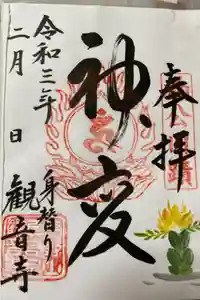 奉拝
神変
身替り
観音寺
令和三年
二月 日